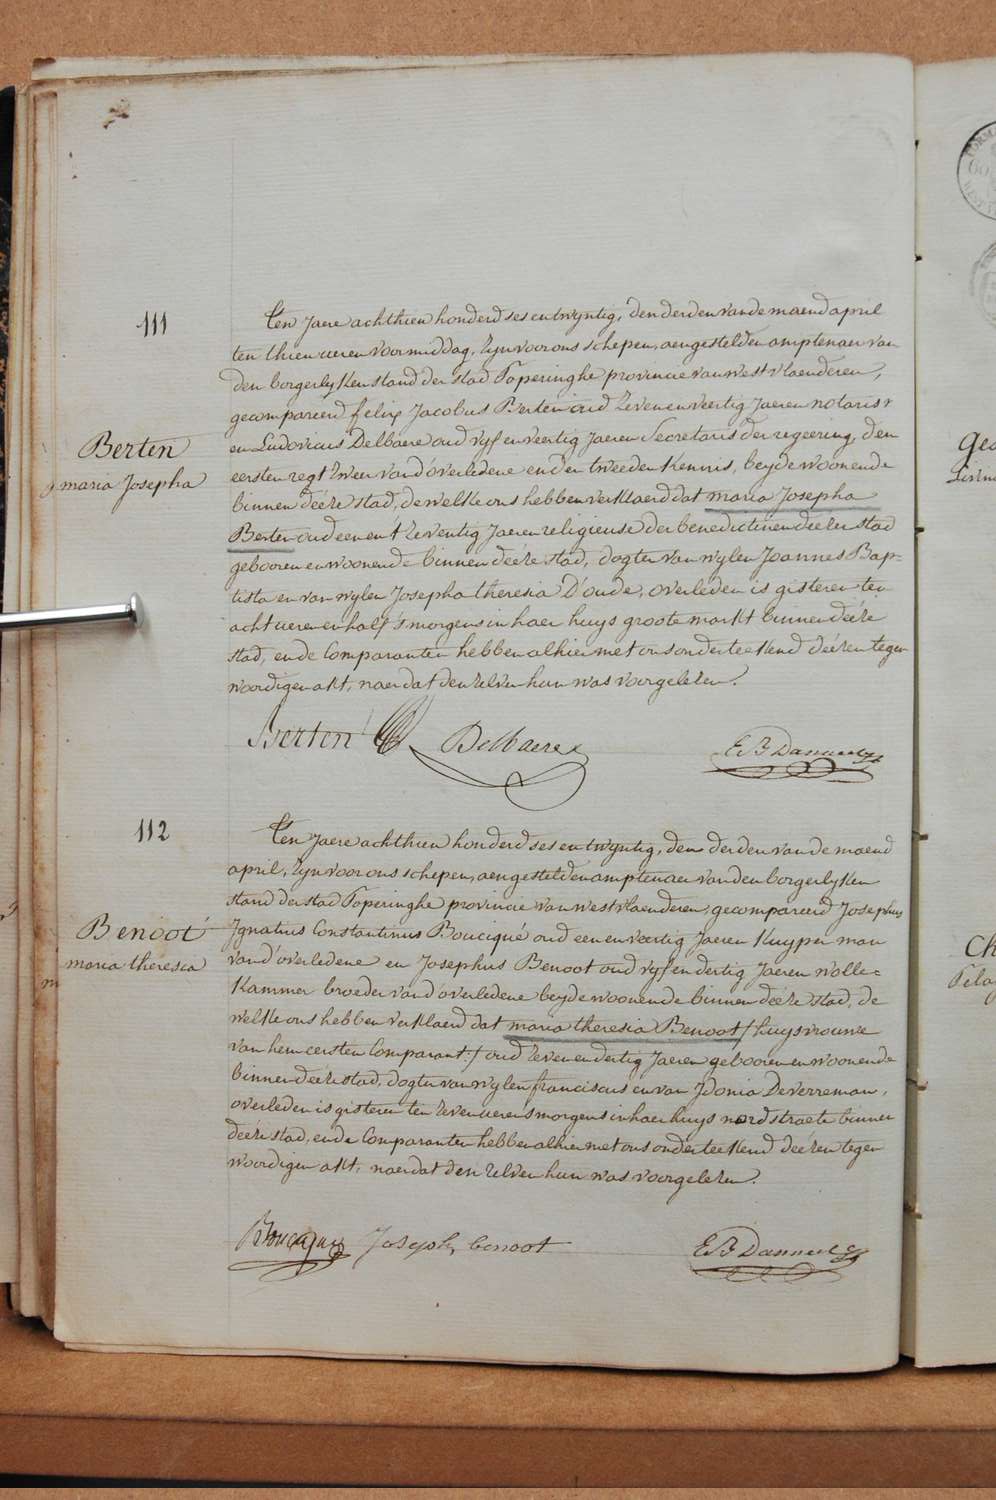 111
Berten
maria Josepha
Ten Jaere achthien honderd ses en twyntig, den derden van de maend april
ten thien ueren voormiddag, zyn voor ons schepen, aengestelden amptenaer van
den borgerlyken stand der stad Poperinghe provincie van westvlaenderen,
gecompareerd felix Jacobus Berten oud zeven en veertig Jaeren notaris
en Ludovicus Delbaere oud vyf en veertig Jaeren Secretaris der regeering, den
eersten regtzweer van d'overledene en den tweeden kennis, beyde woonende
binnen deéze stad, de welke ons hebben verklaerd dat maria Josepha
Berten oud een en tzeventig Jaeren religieuse der benedictinen deézer stad
gebooren en woonende binnen deéze stad, dogter van wylen Joannes Bap-
tista en van wylen Josepha theresia D'oude, overleden is gisteren ten
acht ueren en half s'morgens in haer huys groote markt binnen deéze
stad, en de Comparanten hebben alhier met ons onderteekend deézen tegen
woordigen akt, naer dat den zelven hun was voorgelezen.
Berten Delbaere E B Dannee
112
Benoot
maria theresia
Ten Jaere achthien honderd ses en twyntig, den derden van de maend
april, zyn voor ons schepen, aengestelden amptenaer van den borgerlyken
stand der stad Poperinghe provincie van westvlaenderen, gecompareerd Josephus
Ignatius Constantinus Bouciqué oud een en veertig Jaeren Kuyper man
van d'overledene en Josephus Benoot oud vyf en dertig Jaeren wolle-
kammer broeder van d'overledene beyde woonende binnen deéze stad, de
welke ons hebben verklaerd dat maria theresia Benoot /huysvrouwe
van hem eersten Comparant:/ oud zeven en dertig Jaeren gebooren en woonende
binnen deéze stad, dogter van wylen franciscus en van Idonia Deverreman,
overleden is gisteren ten zeven ueren s'morgens in haer huys nord straete binnen
deéze stad, en de Comparanten hebben alhier met ons onderteekend deézen tegen
woordigen akt, naer dat den zelven hun was voorgelezen.
Bouciqué Joseph benoot E B Dannee